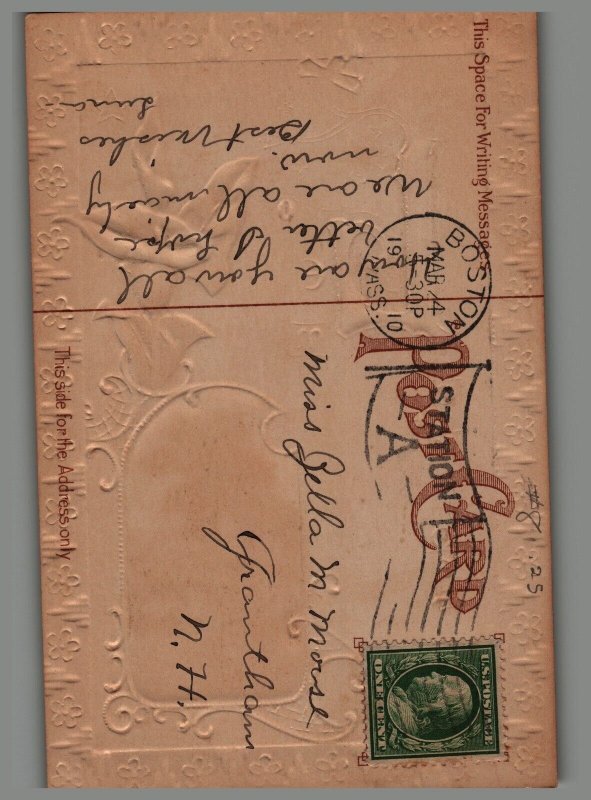 This Space For Writing Messages
are you all
better I hope
We are all nicely
now.
Best Wishes
POST CARD
This side for the Address only
BOSTON
MAR 4
30P
1910
MASS.
STATION
A
Miss Zella M Morse
Grantham
N.H.
U.S. POSTAGE
ONE CENT
#8 .25